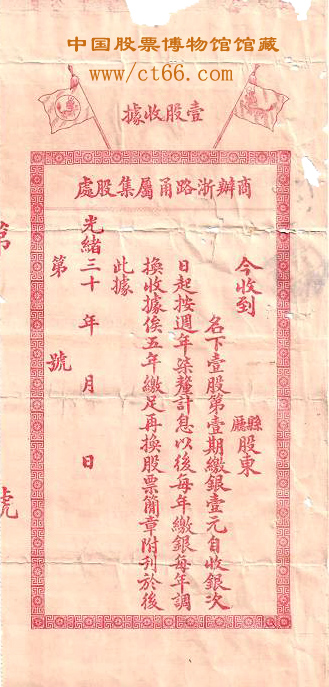 中国股票博物馆馆藏
www.ct66.com
壹股收據
商辦浙路甬屬集股處
今收到 縣廳股東
名下壹股第壹期繳銀壹元自收銀次
日起按週年柒釐計息以後每年繳銀每年調
換收據俟五年繳足再換股票簡章附刊於後
此據
光緒三十 年 月 日
第 號
第 號